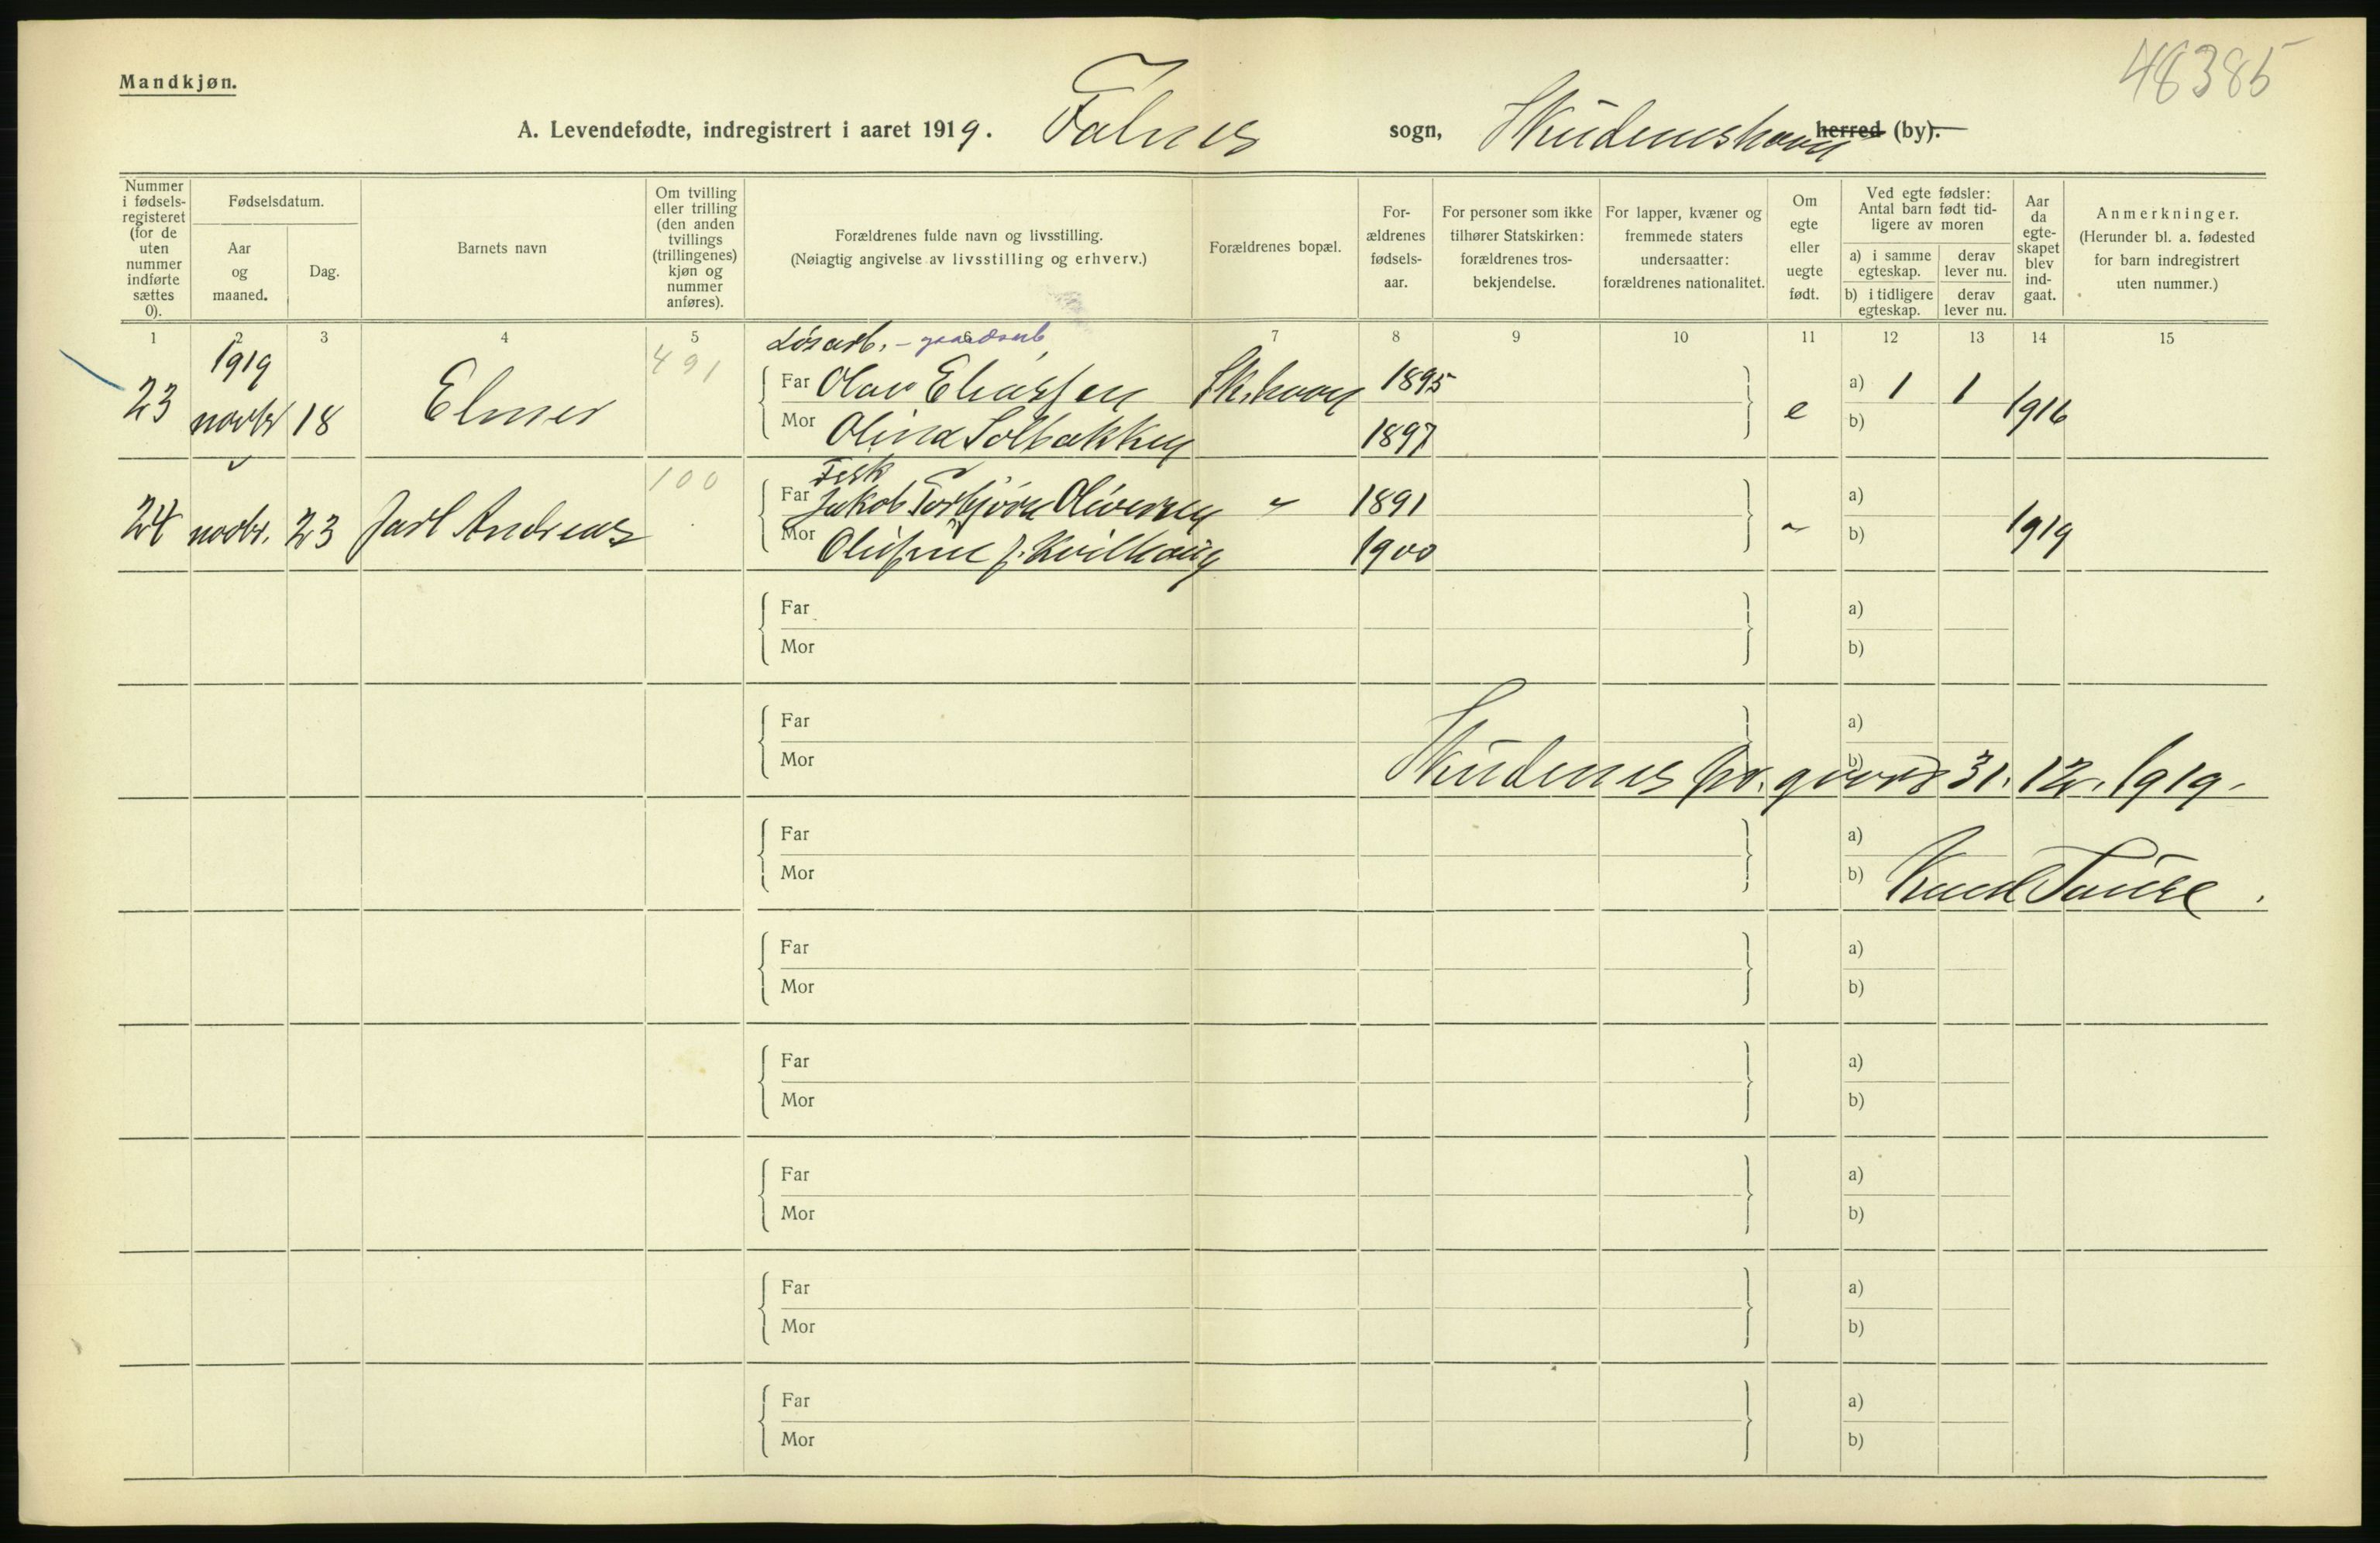 48385
Mandkjøn.
A. Levendefødte, indregistrert i aaret 1919. Falnes sogn, Skudeneshavn herred (by).
Nummer i fødsels-registeret (for de uten nummer indførte sættes 0).
Fødselsdatum.
Aar og maaned.
Dag.
Barnets navn
Om tvilling eller trilling (den anden tvillings (trillingenes) kjøn og nummer anføres).
Forældrenes fulde navn og livsstilling.
(Nøiagtig angivelse av livsstilling og erhverv.)
Forældrenes bopæl.
For-ældrenes fødsels-aar.
For personer som ikke tilhører Statskirken: forældrenes tros-bekjendelse.
For lapper, kvæner og fremmede staters undersaatter: forældrenes nationalitet.
Om egte eller uegte født.
Ved egte fødsler: Antal barn født tid-ligere av moren
a) i samme egteskap.
derav lever nu.
b) i tidligere egteskap.
derav lever nu.
Aar da egte-skapet blev ind-gaat.
Anmerkninger.
(Herunder bl. a. fødested for barn indregistrert uten nummer.)
1 2 3 4 5 6 7 8 9 10 11 12 13 14 15
1919 491 Løsarb. - gaardsarb.
23 novbr 18 Elmer Far Olav Eliassen Sk.havn 1895 e a) 1 1 1916
Mor Olina Solbakken 1897 b)
100 Fisk
24 novbr. 23 Jarl Andreas Far Jakob Torbjørn Oliversen " 1891 " a) 1919
Mor Olufine J. Kvilhaug 1900 b)
Far a)
Mor b)
Far a)
Mor b)
Skudenes pr.gaard 31. 12. 1919.
Far a)
Mor b) Knud Tause.
Far a)
Mor b)
Far a)
Mor b)
Far a)
Mor b)
Far a)
Mor b)
Far a)
Mor b)